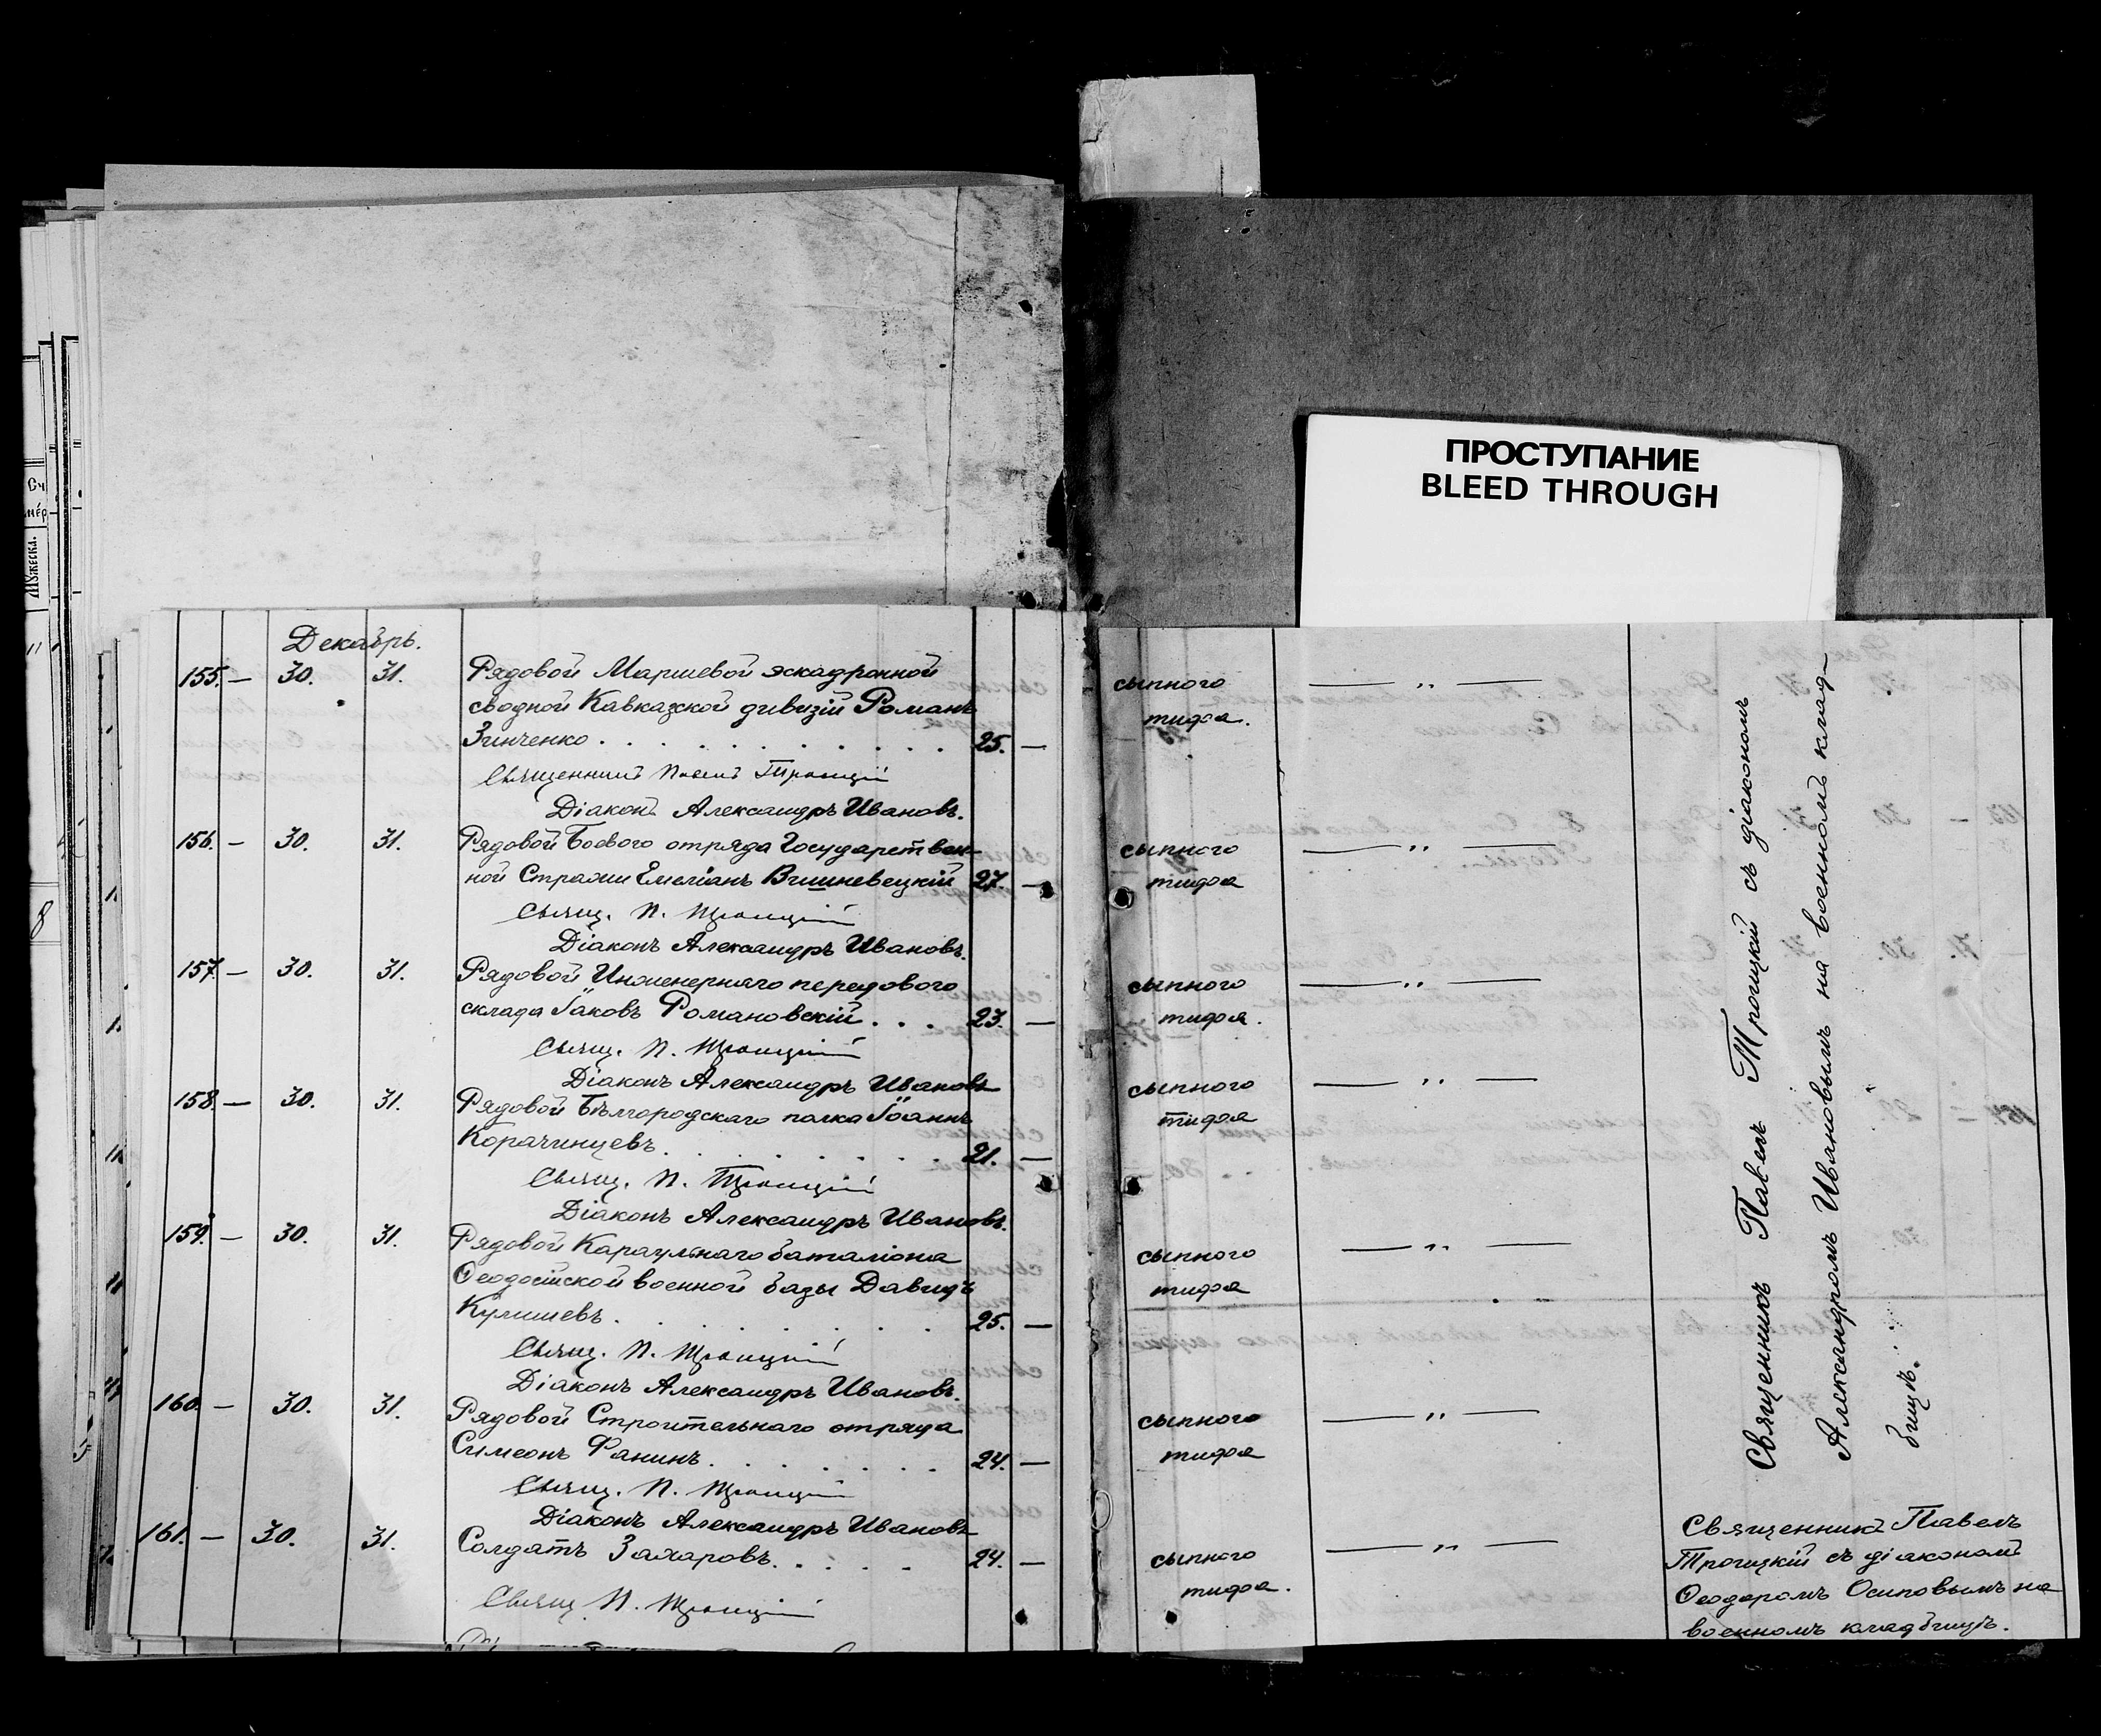 ПРОСТУПАНИЕ
BLEED THROUGH
Мужеска.
8
Декабрь.
155. — 30. 31. Рядовой Маршевой эскадронной сыпного — „ —
сводной Кавказской дивизіи Романъ тифа.
Зинченко . . . 25. —
Священникъ Павелъ Троицкій
Діаконъ Александръ Ивановъ.
156. — 30. 31. Рядовой Боевого отряда Государствен- сыпного — „ —
ной Стражи Емеліанъ Вишневецкій 27. — тифа
Свящ. П. Троицкій
Діаконъ Александръ Ивановъ.
157. — 30. 31. Рядовой Инженернаго передового сыпного — „ —
склада Іаковъ Романовскій . . . 23. — тифа.
Свящ. П. Троицкій
Діаконъ Александръ Ивановъ
158. — 30. 31. Рядовой Бѣлгородскаго полка Іоаннъ сыпного — „ —
Корачинцевъ. . . . 21. — тифа
Свящ. П. Троицкій
Діаконъ Александръ Ивановъ.
159. — 30. 31. Рядовой Караульнаго баталіона сыпного — „ —
Ѳеодосійской военной базы Давидъ тифа
Кулишевъ . . . 25. —
Свящ. П. Троицкій
Діаконъ Александръ Ивановъ.
160. — 30. 31. Рядовой Строительнаго отряда сыпного — „ —
Симеонъ Фанинъ. . . . 24. — тифа
Свящ. П. Троицкій
Діаконъ Александръ Ивановъ
161. — 30. 31. Солдатъ Захаровъ. . . . 24. — сыпного — „ —
тифа.
Свящ. П. Троицкій
Священникъ Павелъ Троицкій съ діакономъ
Александромъ Ивановымъ на военномъ клад-
бищѣ.
Священникъ Павелъ
Троицкій съ діакономъ
Ѳеодоромъ Осиповымъ на
военномъ кладбищѣ.